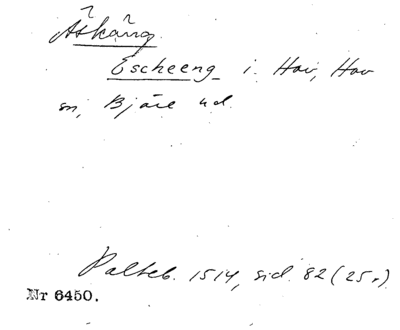 Äskäng
Escheeng i Hov, Hov
sn, Bjäre hd.
Palteb. 1514, sid. 82 (25 r.)
Nr 6450.